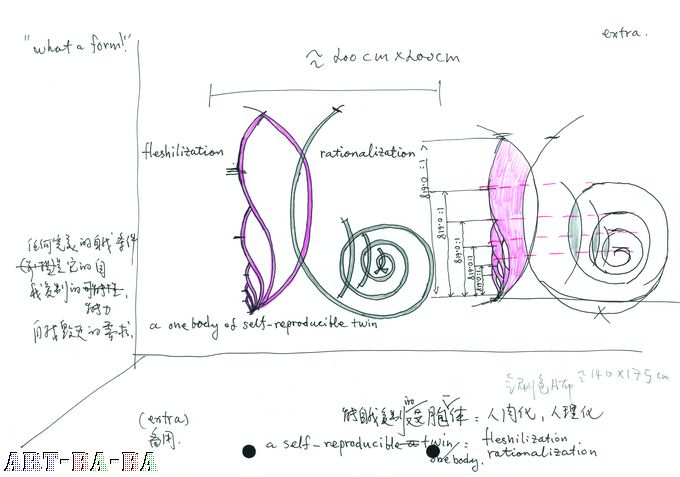 "what a form!"
extra.
≈ 200 cm × 200 cm
fleshilization
rationalization
1:0.618
1:0.618
1:0.618
1:0.618
任何完美的自我条件
是它的自
我复制的
能力
自我毁灭的要求.
a one body of self-reproducible twin
≈ 140 × 175 cm
(extra)
备用.
能自我复制 胞体: 人肉化, 人理化
a self-reproducible twin: fleshilization
one body. rationalization
ART-BA-BA